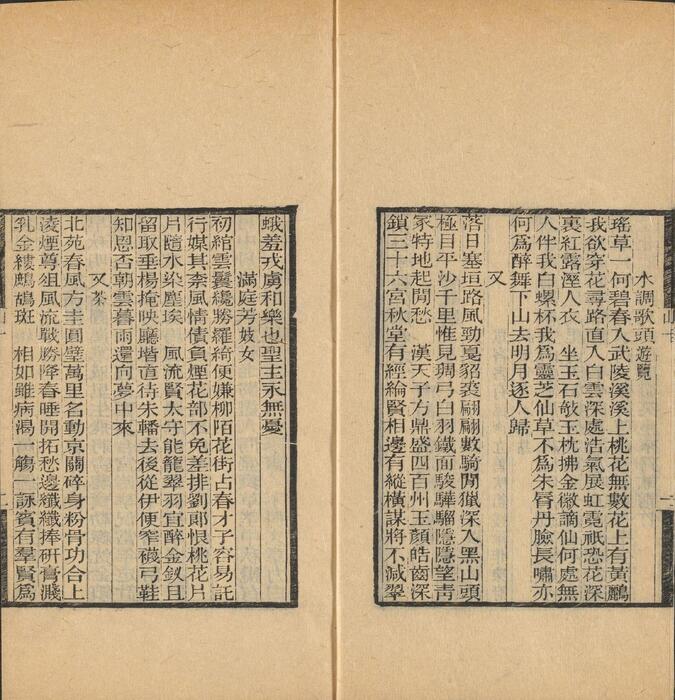 水調歌頭遊覽
瑤草一何碧春入武陵溪溪上桃花無數花上有黃鸝
我欲穿花尋路直入白雲深處浩氣展虹霓祇恐花深
裏紅露溼人衣 坐玉石欹玉枕拂金徽謫仙何處無
人伴我白螺杯我爲靈芝仙草不爲朱脣丹臉長嘯亦
何爲醉舞下山去明月逐人歸
又
落日塞垣路風勁戛貂裘翩翩數騎閒獵深入黑山頭
極目平沙千里惟見琱弓白羽鐵面駿驊騮隱隱望青
冢特地起閒愁 漢天子方鼎盛四百州玉顏皓齒深
鎖三十六宮秋堂有經綸賢相邊有縱橫謀將不減翠
蛾羞戎虜和樂也聖主永無憂
滿庭芳妓女
初綰雲鬟纔勝羅綺便嫌柳陌花街占春才子容易託
行媒其柰風情債負煙花部不免差排劉郞恨桃花片
片隨水染塵埃 風流賢太守能籠翠羽宜醉金釵且
留取垂楊掩映廳堦直待朱轓去後從伊便窄襪弓鞋
知恩否朝雲暮雨還向夢中來
又茶
北苑春風方圭圓璧萬里名動京關碎身粉骨功合上
淩煙尊俎風流戰勝降春睡開拓愁邊纖纖捧研膏濺
乳金縷鷓鴣斑 相如雖病渴一觴一詠賓有羣賢爲
山
一
山
二